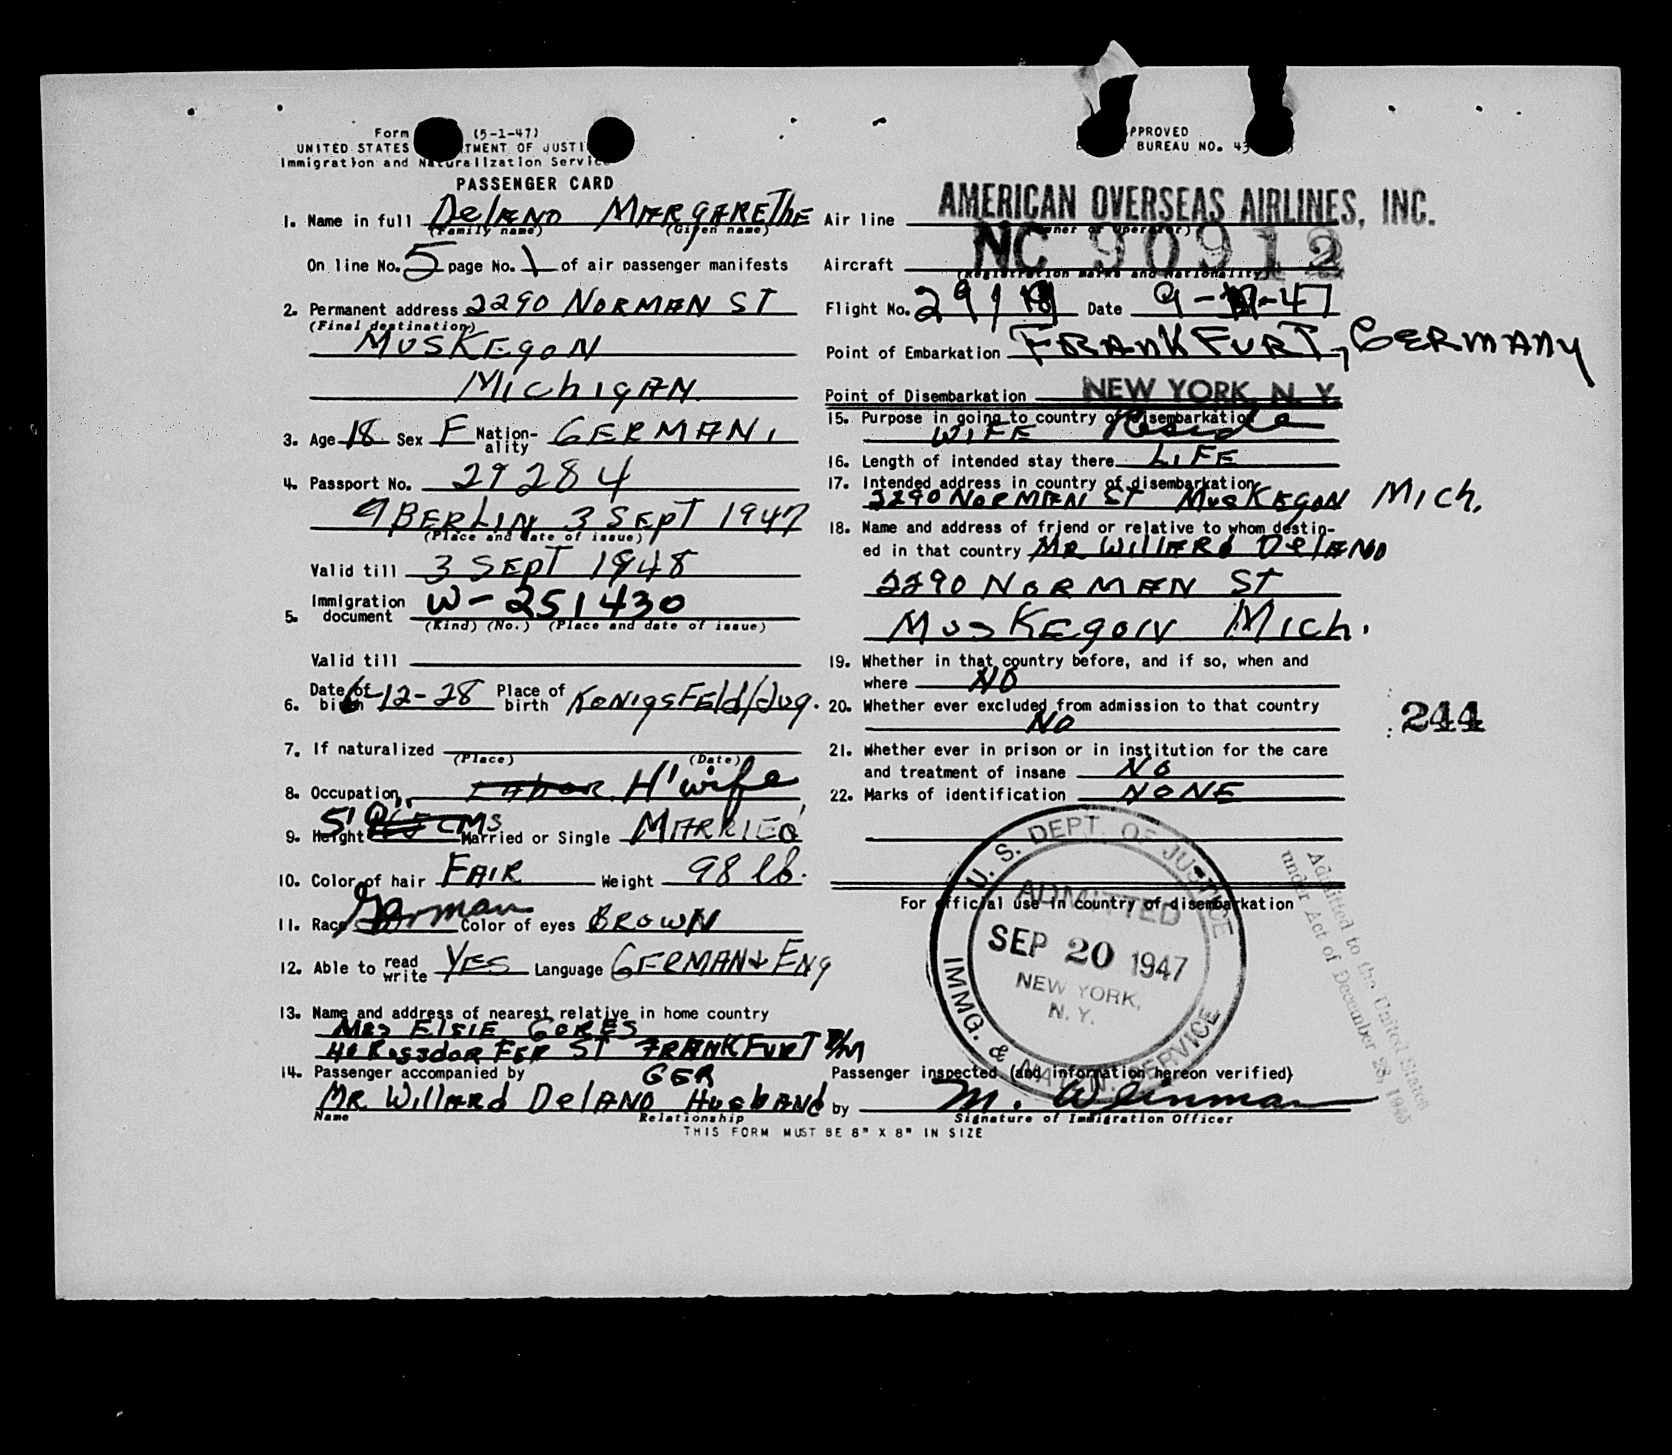 Form (5-1-47)
UNITED STATES TMENT OF JUSTI
Immigration and Naturalization Service
PASSENGER CARD
PPROVED
BUREAU NO. 43
1. Name in full DelANO MARgAREThE
(Family name) (Given name)
On line No. 5 page No. 1 of air passenger manifests
2. Permanent address 2290 NORMAN ST
(Final destination)
MUSKEgoN
MIChIgAN.
3. Age 18 Sex F Nation-ality GERMAN.
4. Passport No. 29284
BERLIN 3 SEpT 1947
(Place and date of issue)
Valid till 3 SEpT 1948
5. Immigration document W-251430
(Kind) (No.) (Place and date of issue)
Valid till
6. Date of birth 6-12-28 Place of birth KONIgSFEld/Jug.
7. If naturalized
(Place) (Date)
8. Occupation H'wife
9. Height 5' CMS Married or Single MARRIEd
10. Color of hair FAIR Weight 98 lb.
11. Race German Color of eyes BROWN
12. Able to read write YES Language GERMAN & ENg
13. Name and address of nearest relative in home country
MRS ElSIE GORES
40 RossdorFER ST FRANKFURT /M
GER
14. Passenger accompanied by
MR WillARd DelANO HusbANd
Name Relationship
THIS FORM MUST BE 8" X 8" IN SIZE
Air line AMERICAN OVERSEAS AIRLINES, INC.
(Owner or Operator)
Aircraft NC 90912
(Registration marks and nationality)
Flight No. 29 Date 9- -47
Point of Embarkation FRANKFURT, GERMANY
Point of Disembarkation NEW YORK, N. Y.
15. Purpose in going to country of disembarkation
WIFE Reside
16. Length of intended stay there LIFE
17. Intended address in country of disembarkation
2290 NORMAN ST MUSKEgoN MICh.
18. Name and address of friend or relative to whom destin-
ed in that country MR WillARd DelANO
2290 NORMAN ST
MUSKEgoN MICh.
19. Whether in that country before, and if so, when and
where NO
20. Whether ever excluded from admission to that country
NO
21. Whether ever in prison or in institution for the care
and treatment of insane NO
22. Marks of identification NONE
244
For official use in country of disembarkation
U. S. DEPT. OF JUSTICE
ADMITTED
SEP 20 1947
NEW YORK,
N. Y.
IMMG. & NATZN. SERVICE
Admitted to the United States
under Act of December 28, 1945
Passenger inspected (and information hereon verified)
by M. Weinman
Signature of Immigration Officer